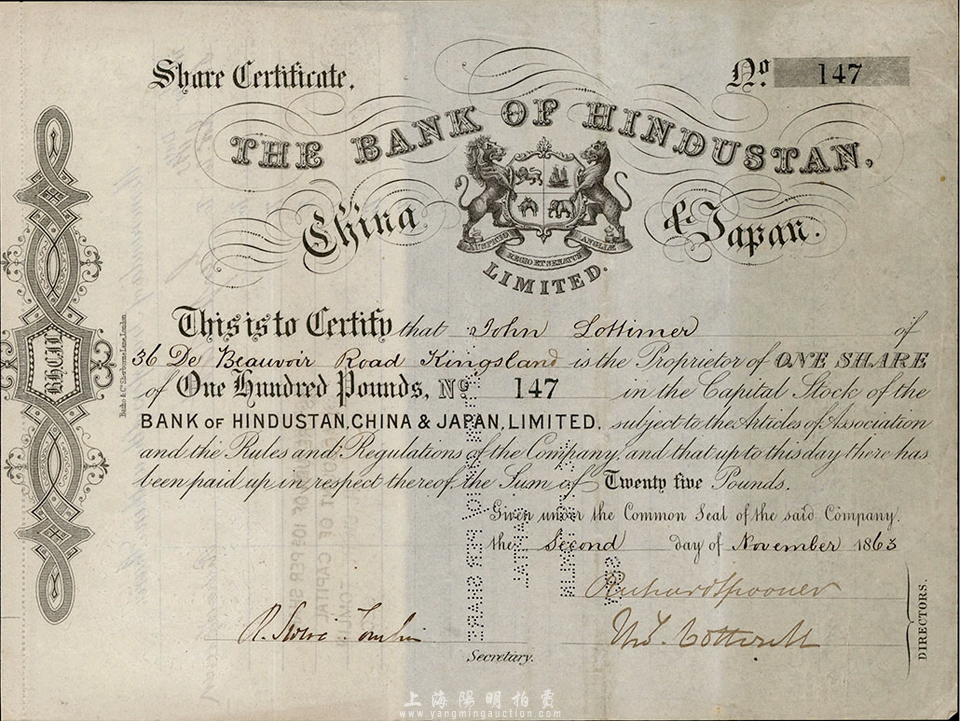 Share Certificate.
No. 147
THE BANK OF HINDUSTAN,
China & Japan.
AUSPICIO REGIS ET SENATUS ANGLIÆ
LIMITED.
This is to Certify that John Lottimer of
36 De Beauvoir Road Kingsland is the Proprietor of ONE SHARE
of One Hundred Pounds, No. 147 in the Capital Stock of the
BANK OF HINDUSTAN, CHINA & JAPAN, LIMITED, subject to the Articles of Association
and the Rules and Regulations of the Company, and that up to this day there has
been paid up in respect thereof, the Sum of Twenty five Pounds.
Given under the Common Seal of the said Company
the Second day of November 1863
Richard Spooner
DIRECTORS.
Secretary.
上海陽明拍賣
www.yangmingauction.com